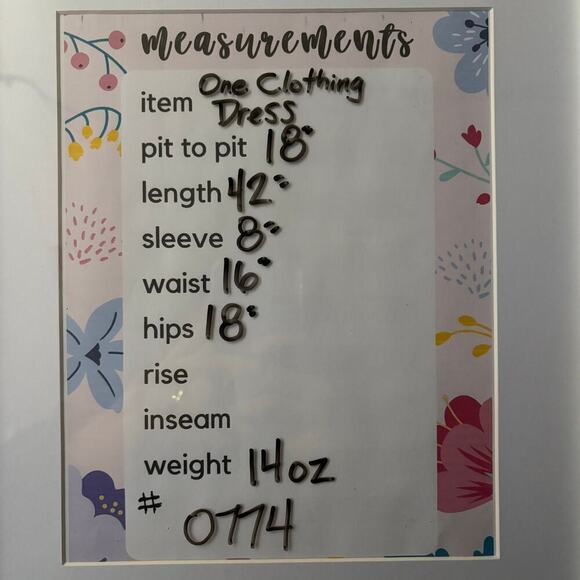 measurements
item One Clothing
Dress
pit to pit 18"
length 42"
sleeve 8"
waist 16"
hips 18"
rise
inseam
weight 14oz
#
0774